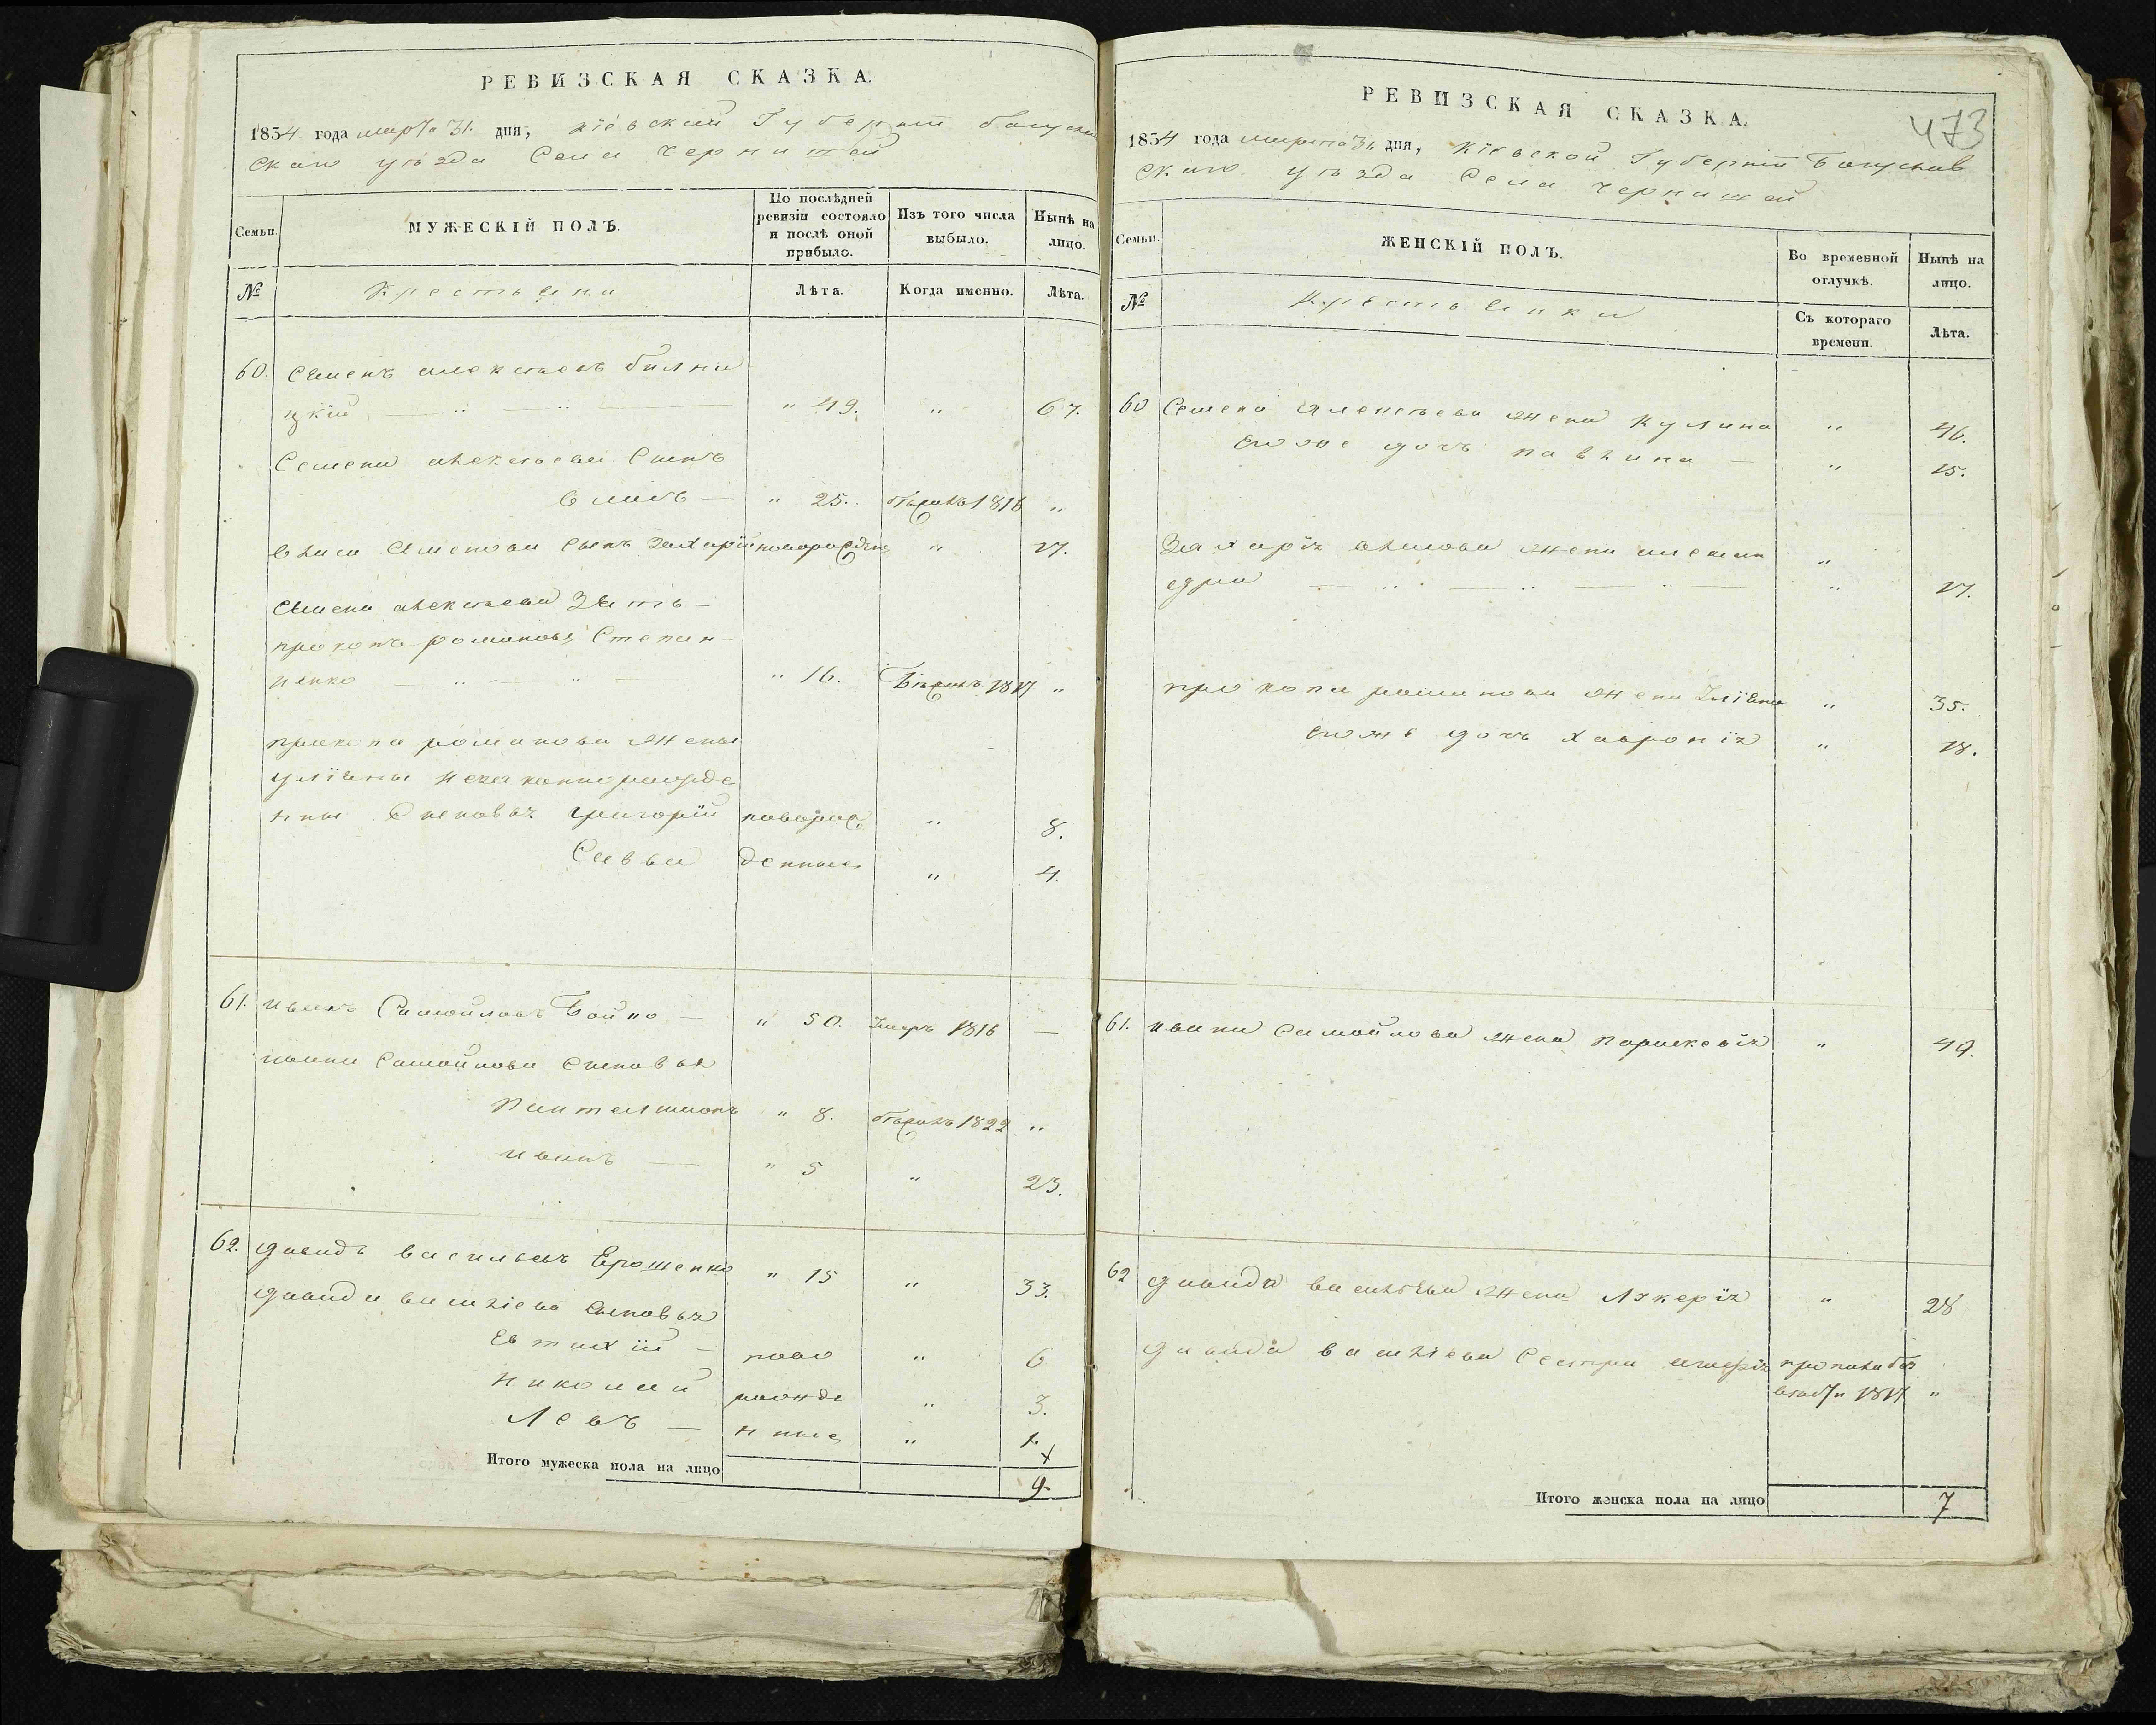 РЕВИЗСКАЯ СКАЗКА.
1834 года марта 31. дня, Кіевской Губерніи богуслав
скаго уѣзда Села Чернишей
Семьи.
МУЖЕСКІЙ ПОЛЪ.
По послѣдней ревизіи состояло и послѣ оной прибыло.
Изъ того числа выбыло.
Нынѣ на лицо.
№
Крестьяни
Лѣта.
Когда именно.
Лѣта.
60. Семенъ алексѣевъ билни
цкій " 49. " 67.
Семена алексѣева Сынъ
власъ — " 25. бѣжалъ 1816 "
власа Семенова сынъ Захарій новорожден " 17.
Семена алексѣева Зять —
прокопъ романовъ Степан-
ненко " 16. Бѣжалъ 1817 "
прокопа романова жены
уліяны незаконнорожде
нны Сыновья григорій новорож " 8.
Савва денные " 4.
61. иванъ Самойловъ Бойко — " 50. Умеръ 1816 —
ивана Самойлова Сыновья
Пантелимонъ " 8. бѣжалъ 1822 "
иванъ — " 5 " 23.
62. давидъ васильевъ Ерошенко " 15 " 33.
давида василіева сыновья
Евтихій — ново " 6
николай рожде " 3.
Левъ — нные " 1.
Итого мужеска пола на лицо 9.
473
РЕВИЗСКАЯ СКАЗКА.
1834 года марта 31 дня, Кіевской Губерніи Богуслав
скаго уѣзда Села Чернишей
Семьи.
ЖЕНСКІЙ ПОЛЪ.
Во временной отлучкѣ.
Нынѣ на лицо.
№
Крестьянки
Съ котораго времени.
Лѣта.
60 Семена Алексѣева жена Кулина " 46.
егоже дочь павлина — " 15.
Захарія власова жена алексан "
едра " 17.
прокопа романова жена Уліяна " 35.
егоже дочь хавронія " 18.
61. ивана Самойлова жена Параскевія " 49.
62 давида василіева жена Лукерія " 28
давида василіева Сестра марія
1817 "
Итого женска пола на лицо 7